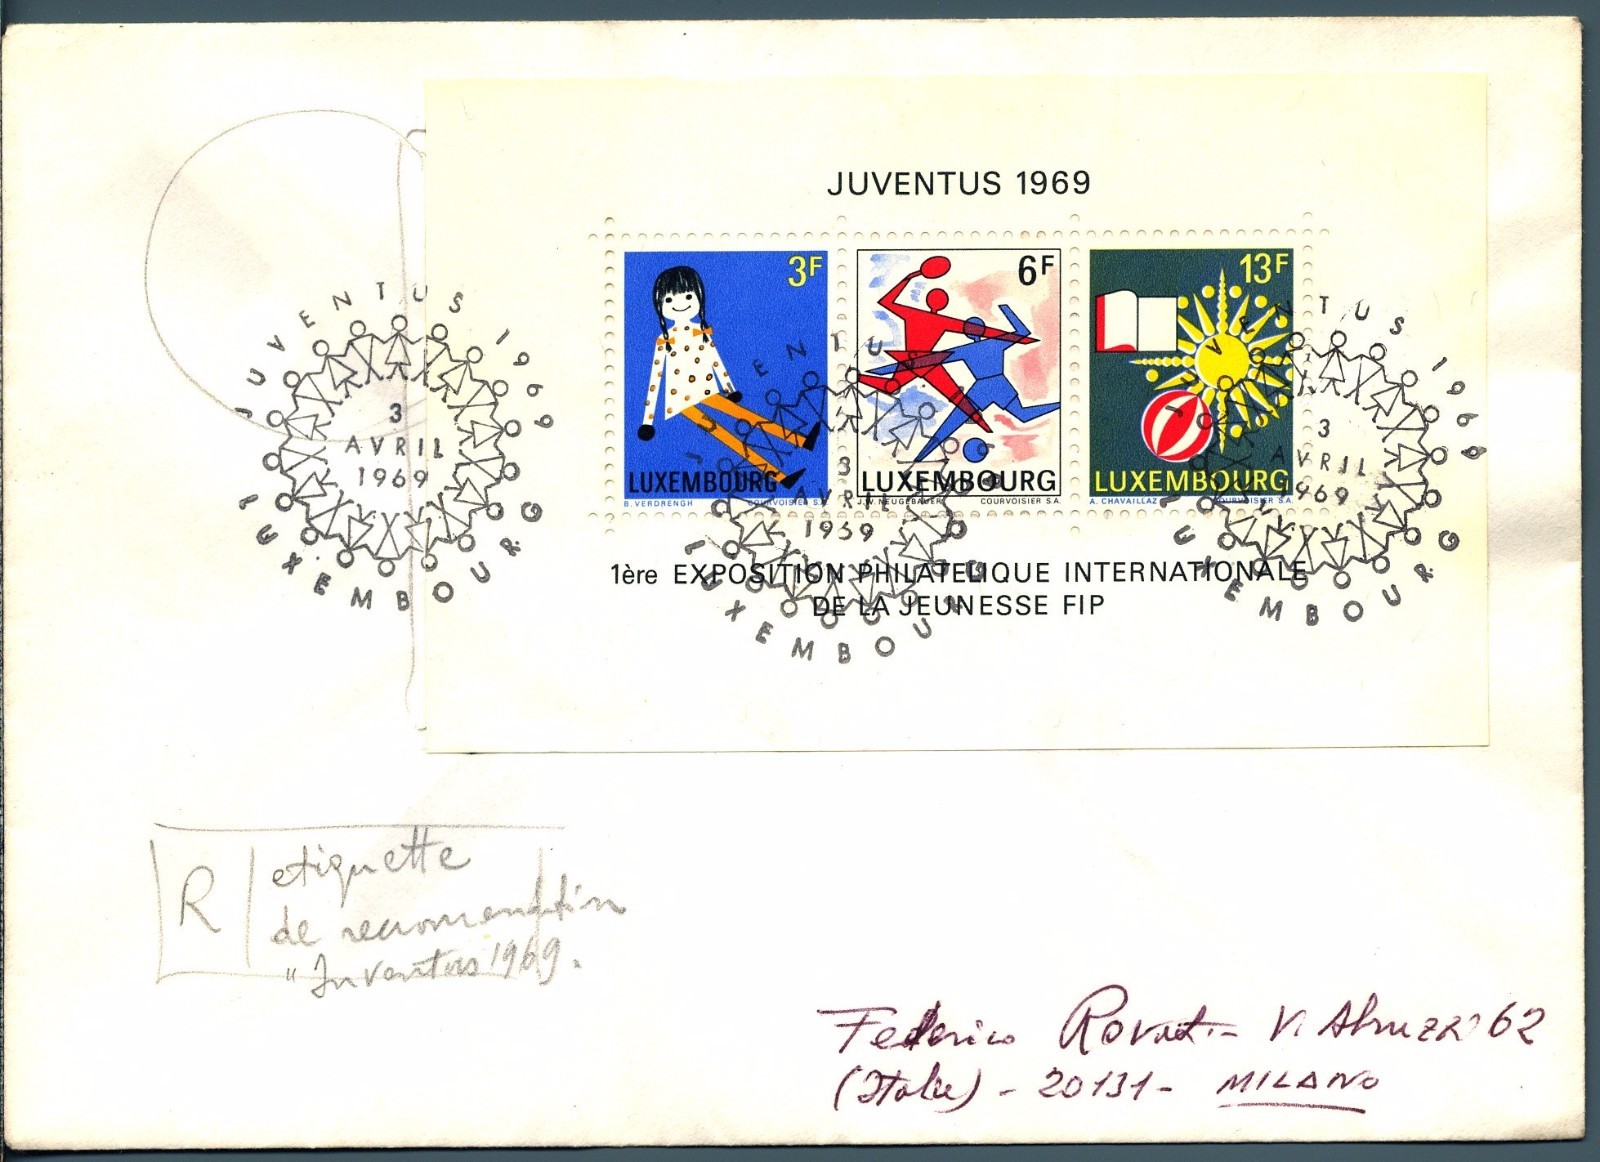 JUVENTUS 1969
3F
LUXEMBOURG
B. VERDRENGH COURVOISIER S.A.
6F
LUXEMBOURG
J.W. NEUGEBAUER COURVOISIER S.A.
13F
LUXEMBOURG
A. CHAVAILLAZ COURVOISIER S.A.
1ère EXPOSITION PHILATELIQUE INTERNATIONALE
DE LA JEUNESSE FIP
JUVENTUS 1969
3
AVRIL
1969
LUXEMBOURG
JUVENTUS 1969
3
AVRIL
1969
LUXEMBOURG
JUVENTUS 1969
3
AVRIL
1969
LUXEMBOURG
R
etiquette
de recomendation
"Juventus 1969.
Federico Rovati - V. Abruzzi 62
(Italie) - 20131 - MILANO